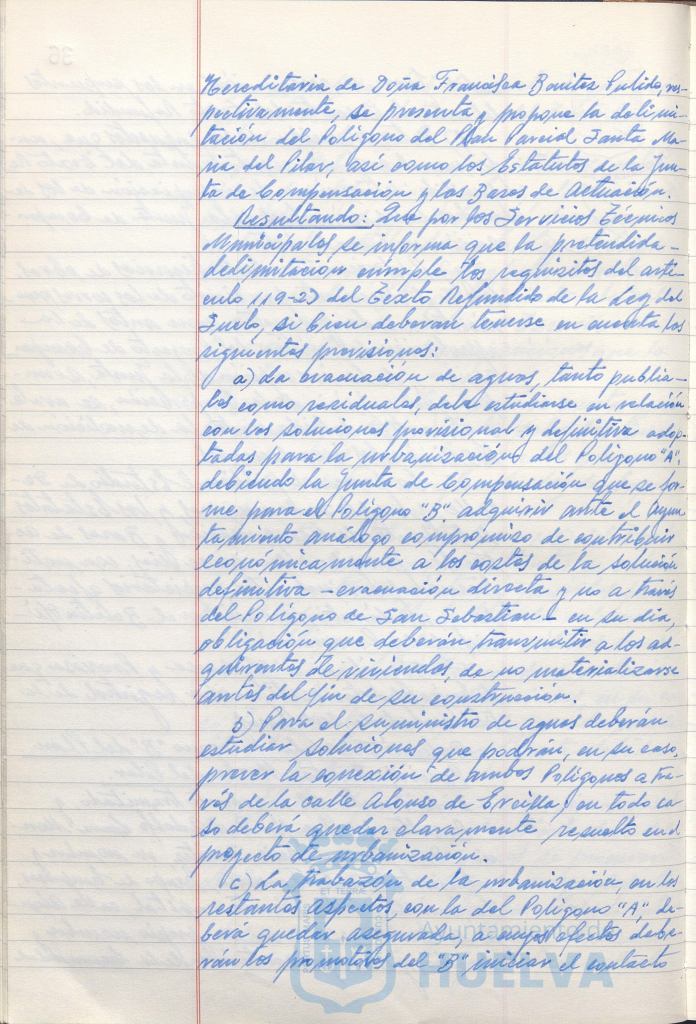 Hereditaria de Doña Francisca Benitez Pulido, res-
pectivamente, se presenta y propone la delimi-
tación del Poligono del Plan Parcial Santa Ma-
ria del Pilar, así como los Estatutos de la Jun-
ta de Compensación y las Bases de Actuación.
Resultando: Que por los Servicios Técnicos
Municipales, se informa que la pretendida
delimitación cumple los requisitos del artí-
culo 119-2) del Texto Refundido de la Ley del
Suelo, si bien deberan tenerse en cuenta las
siguientes previsiones:
a) La evacuación de aguas, tanto pluvia-
les como residuales, debe estudiarse en relación
con las soluciones provisional y definitiva adop-
tadas para la urbanización del Poligono "A",
debiendo la Junta de Compensación que se for-
me para el Poligono "B" adquirir ante el Ayun-
tamiento análogo compromiso de contribuir
económicamente a los costes de la solución
definitiva - evacuación directa y no a través
del Poligono de San Sebastian - en su dia,
obligación que deberán transmitir a los ad-
quirentes de viviendas, de no materializarse
antes del fin de su construcción.
b) Para el suministro de aguas deberán
estudiar soluciones que podrán, en su caso,
prever la conexión de ambos Poligonos a tra-
vés de la calle Alonso de Ercilla; en todo ca-
so deberá quedar claramente resuelto en el
proyecto de urbanización.
c) La trabazón de la urbanización, en los
restantes aspectos, con la del Poligono "A", de-
berá quedar asegurada, a cuyos efectos debe-
rán los promotores del "B" iniciar el contacto
Ayuntamiento de
HUELVA